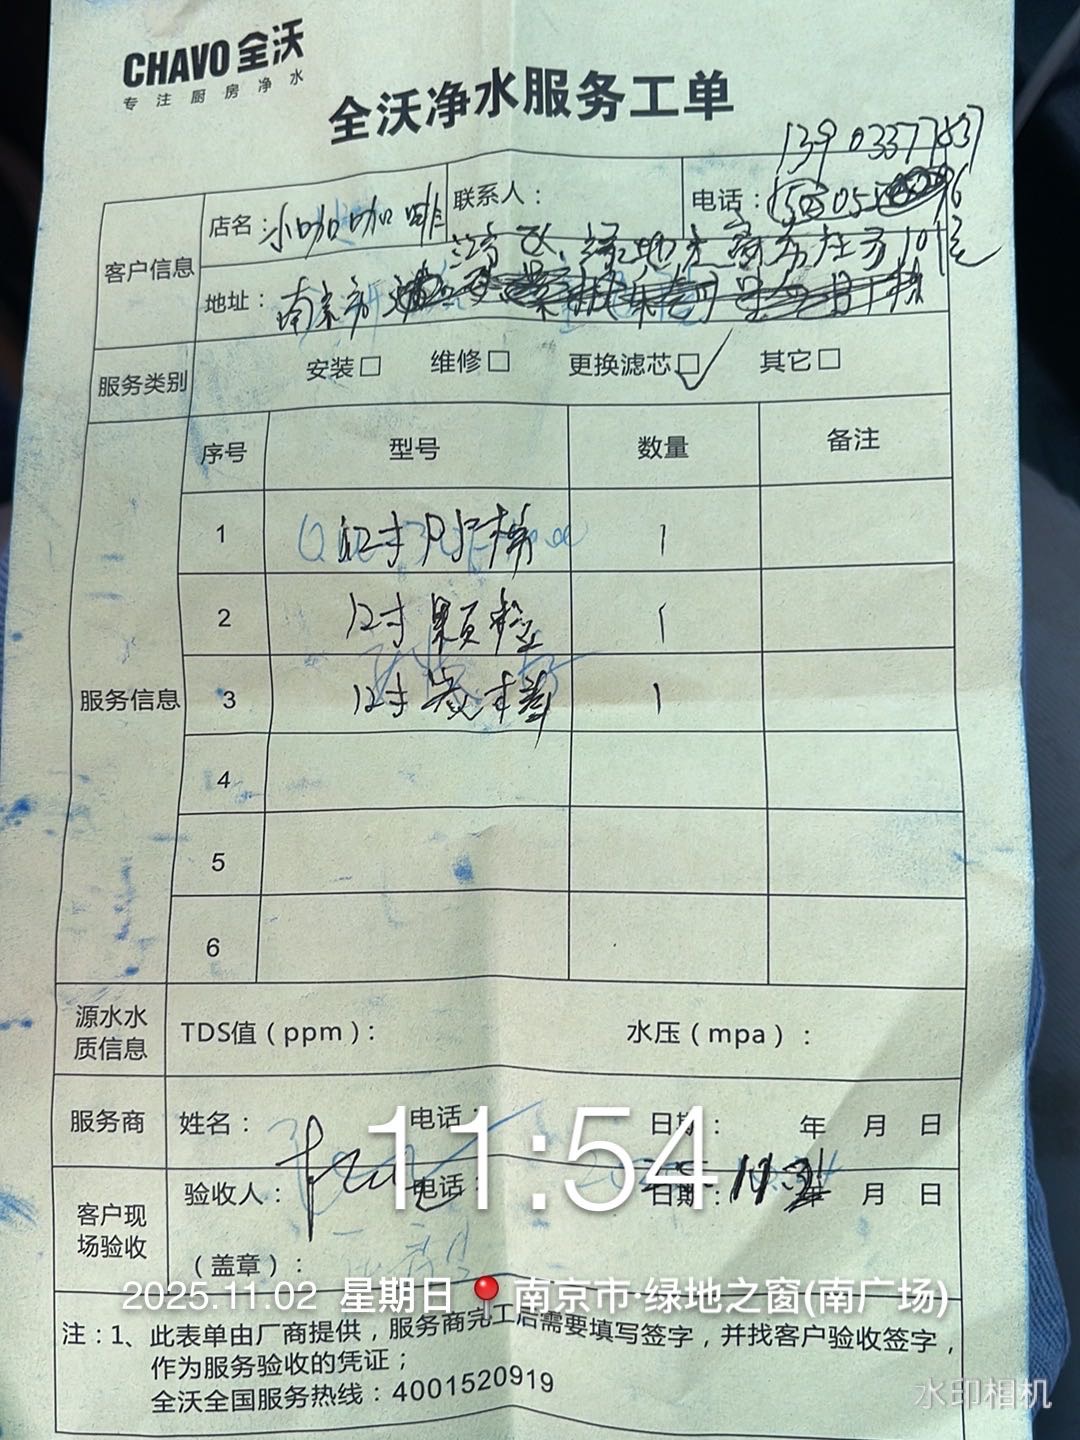 CHAVO 全沃
专注厨房净水
全沃净水服务工单
客户信息
店名：小咖咖啡
联系人：
电话：
地址：南京市
服务类别
安装□ 维修□ 更换滤芯□✓ 其它□
服务信息
序号 型号 数量 备注
1 12寸PP棉 1
2 12寸颗粒 1
3 12寸炭棒 1
4
5
6
源水水质信息
TDS值（ppm）： 水压（mpa）：
服务商
姓名： 电话： 日期： 年 月 日
客户现场验收
验收人： 电话： 日期： 年 月 日
（盖章）：
11:54
2025.11.02 星期日 南京市·绿地之窗(南广场)
注：1、此表单由厂商提供，服务商完工后需要填写签字，并找客户验收签字，
作为服务验收的凭证；
全沃全国服务热线：4001520919
水印相机